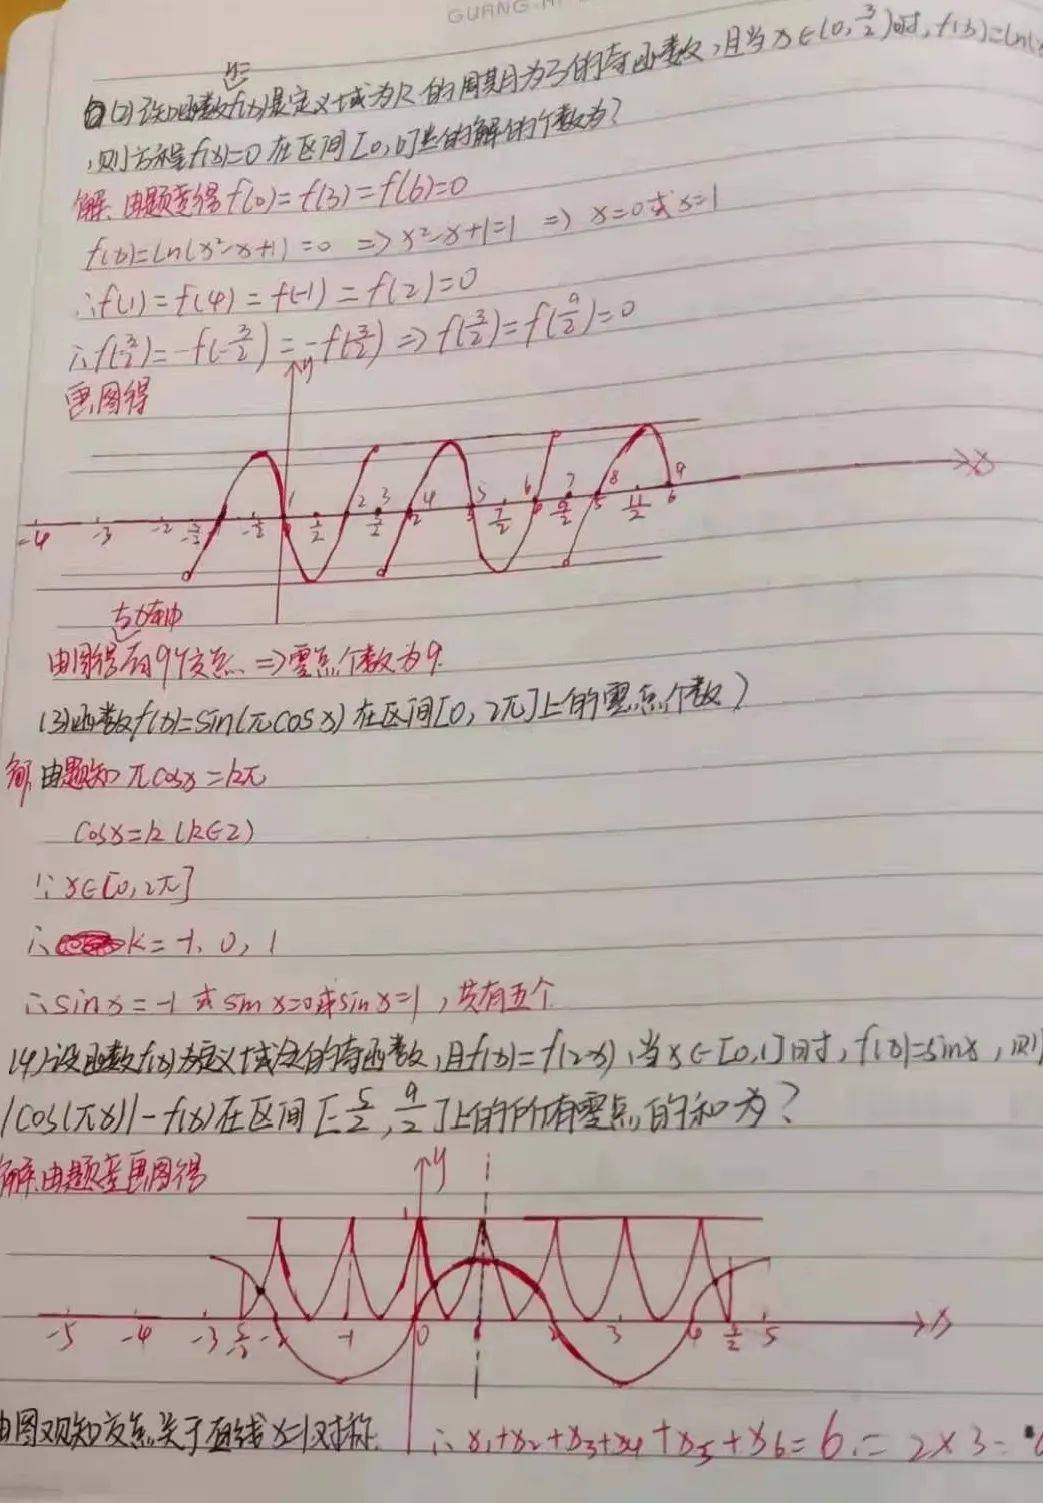 GUANG
(2)已知函数y=f(x)是定义域为R的周期为3的奇函数,且当x∈(0,3/2)时,f(x)=ln(x
,则方程f(x)=0在区间[0,6]上的解的个数为?
解.由题意得f(0)=f(3)=f(6)=0
f(x)=ln(x²-x+1)=0 ⇒x²-x+1=1 ⇒ x=0或x=1
∴f(1)=f(4)=f(-1)=f(2)=0
∴f(3/2)=-f(-3/2)=-f(3/2)⇒f(3/2)=f(9/2)=0
画图得
y
1 2 3 4 5 6 7 8 9
-4 -3 -2 -3/2 -1/2 1/2 3/2 2 3 7/2 9/2 5 11/2 6 x
与x轴
由图得有9个交点 ⇒零点个数为9.
(3)函数f(x)=sin(πcosx)在区间[0,2π]上的零点个数)
解,由题知 πcosx=kπ
cosx=k(k∈Z)
∵x∈[0,2π]
∴k=-1、0,1
∴sinx=-1或sinx=0或sinx=1,共有五个
(4)设函数f(x)为定义域的奇函数,且f(x)=f(2-x),当x∈[0,1]时,f(x)=sinx,则
|cos(πx)|-f(x)在区间[-5/2,9/2]上的所有零点的和为?
解.由题意画图得
y
1
-5 -4 -3 -5/2 -2 -1 0 1 2 3 4 9/2 5 x
由图观知交点关于直线x=1对称. ∴x₁+x₂+x₃+x₄+x₅+x₆=6.=2×3=